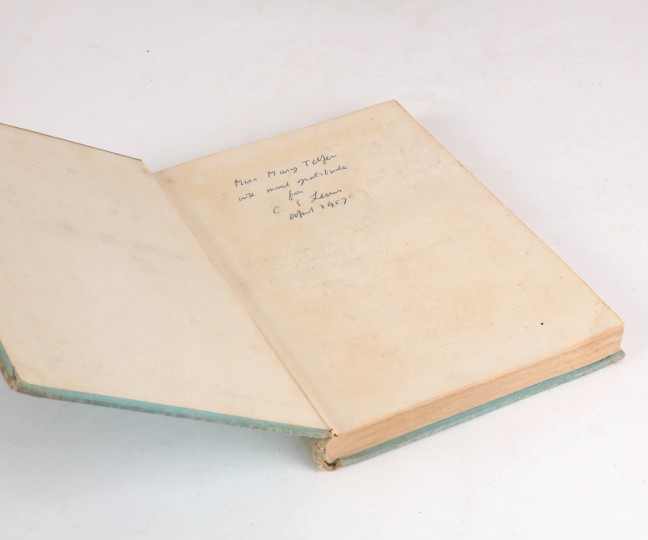 Miss Mary Telfer
with much gratitude
from
C. S. Lewis
April 1957